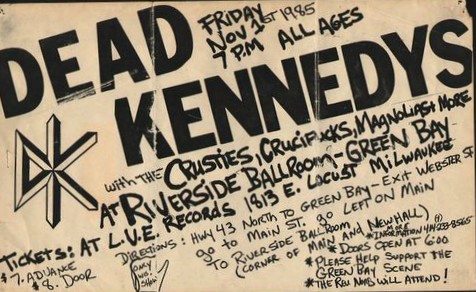 DEAD KENNEDYS
FRIDAY
NOV 1st 1985
7 PM ALL AGES
with THE CRUSTIES, CRUCIFUCKS, MAGNOLIAS + MORE
AT RIVERSIDE BALLROOM - GREEN BAY -
TICKETS: AT L.V.E. RECORDS 1813 E. LOCUST MILWAUKEE
$7. ADVANCE
$8. DOOR
ONLY
WIS.
SHOW!
DIRECTIONS: HWY 43 NORTH TO GREEN BAY - EXIT WEBSTER ST
go to MAIN ST. go LEFT ON MAIN
TO RIVERSIDE BALLROOM
(CORNER OF MAIN AND NEWHALL)
MORE INFORMATION 414-233-8565
* DOORS OPEN AT 6:00
* PLEASE HELP SUPPORT THE
GREEN BAY SCENE
* THE REV. WILL ATTEND!